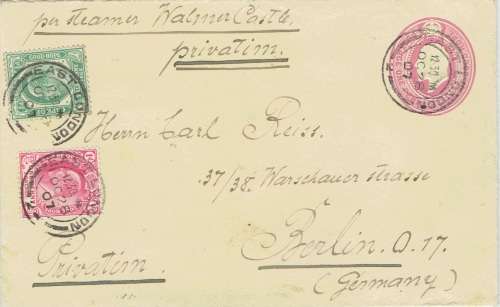 per steamer Walmer Castle,
privatim.
Herrn Carl Reiss.
37/38. Warschauer strasse
Berlin. O. 17.
(Germany)
Privatim.
EAST LONDON
EAST LONDON